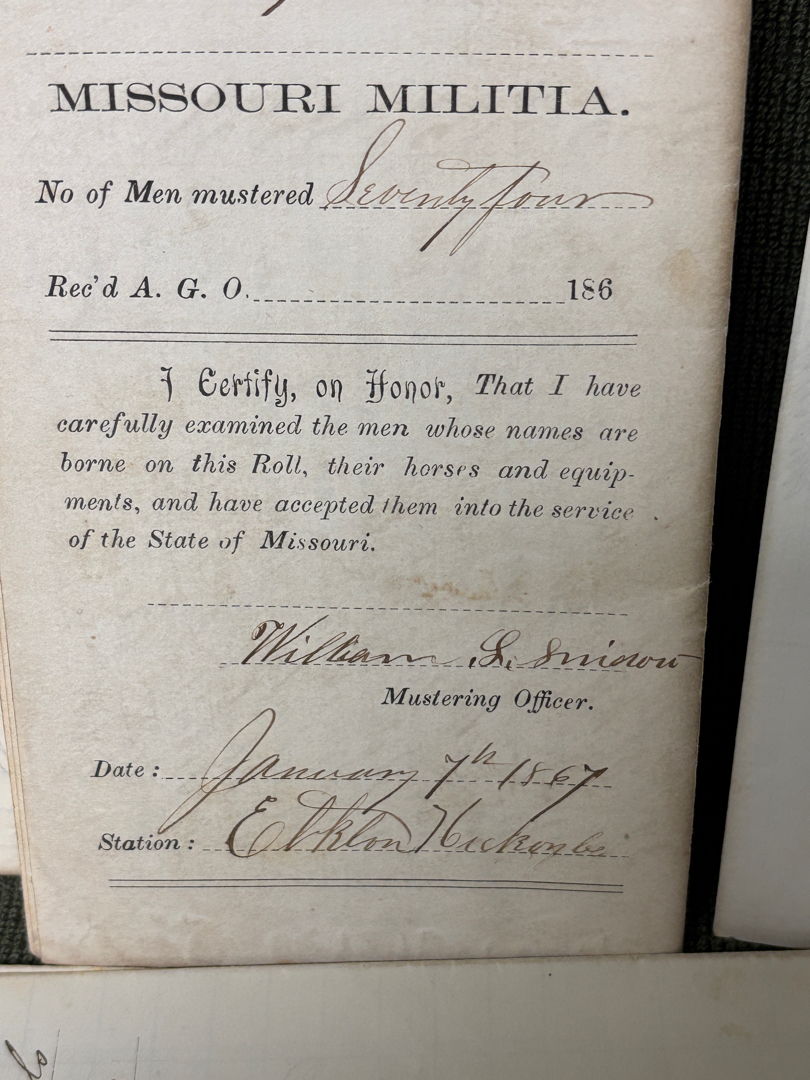 MISSOURI MILITIA.
No of Men mustered Seventy four
Rec'd A. G. O. 186
I Certify, on Honor, That I have
carefully examined the men whose names are
borne on this Roll, their horses and equip-
ments, and have accepted them into the service
of the State of Missouri.
William S.
Mustering Officer.
Date: January 7th 1867
Station: Elkton